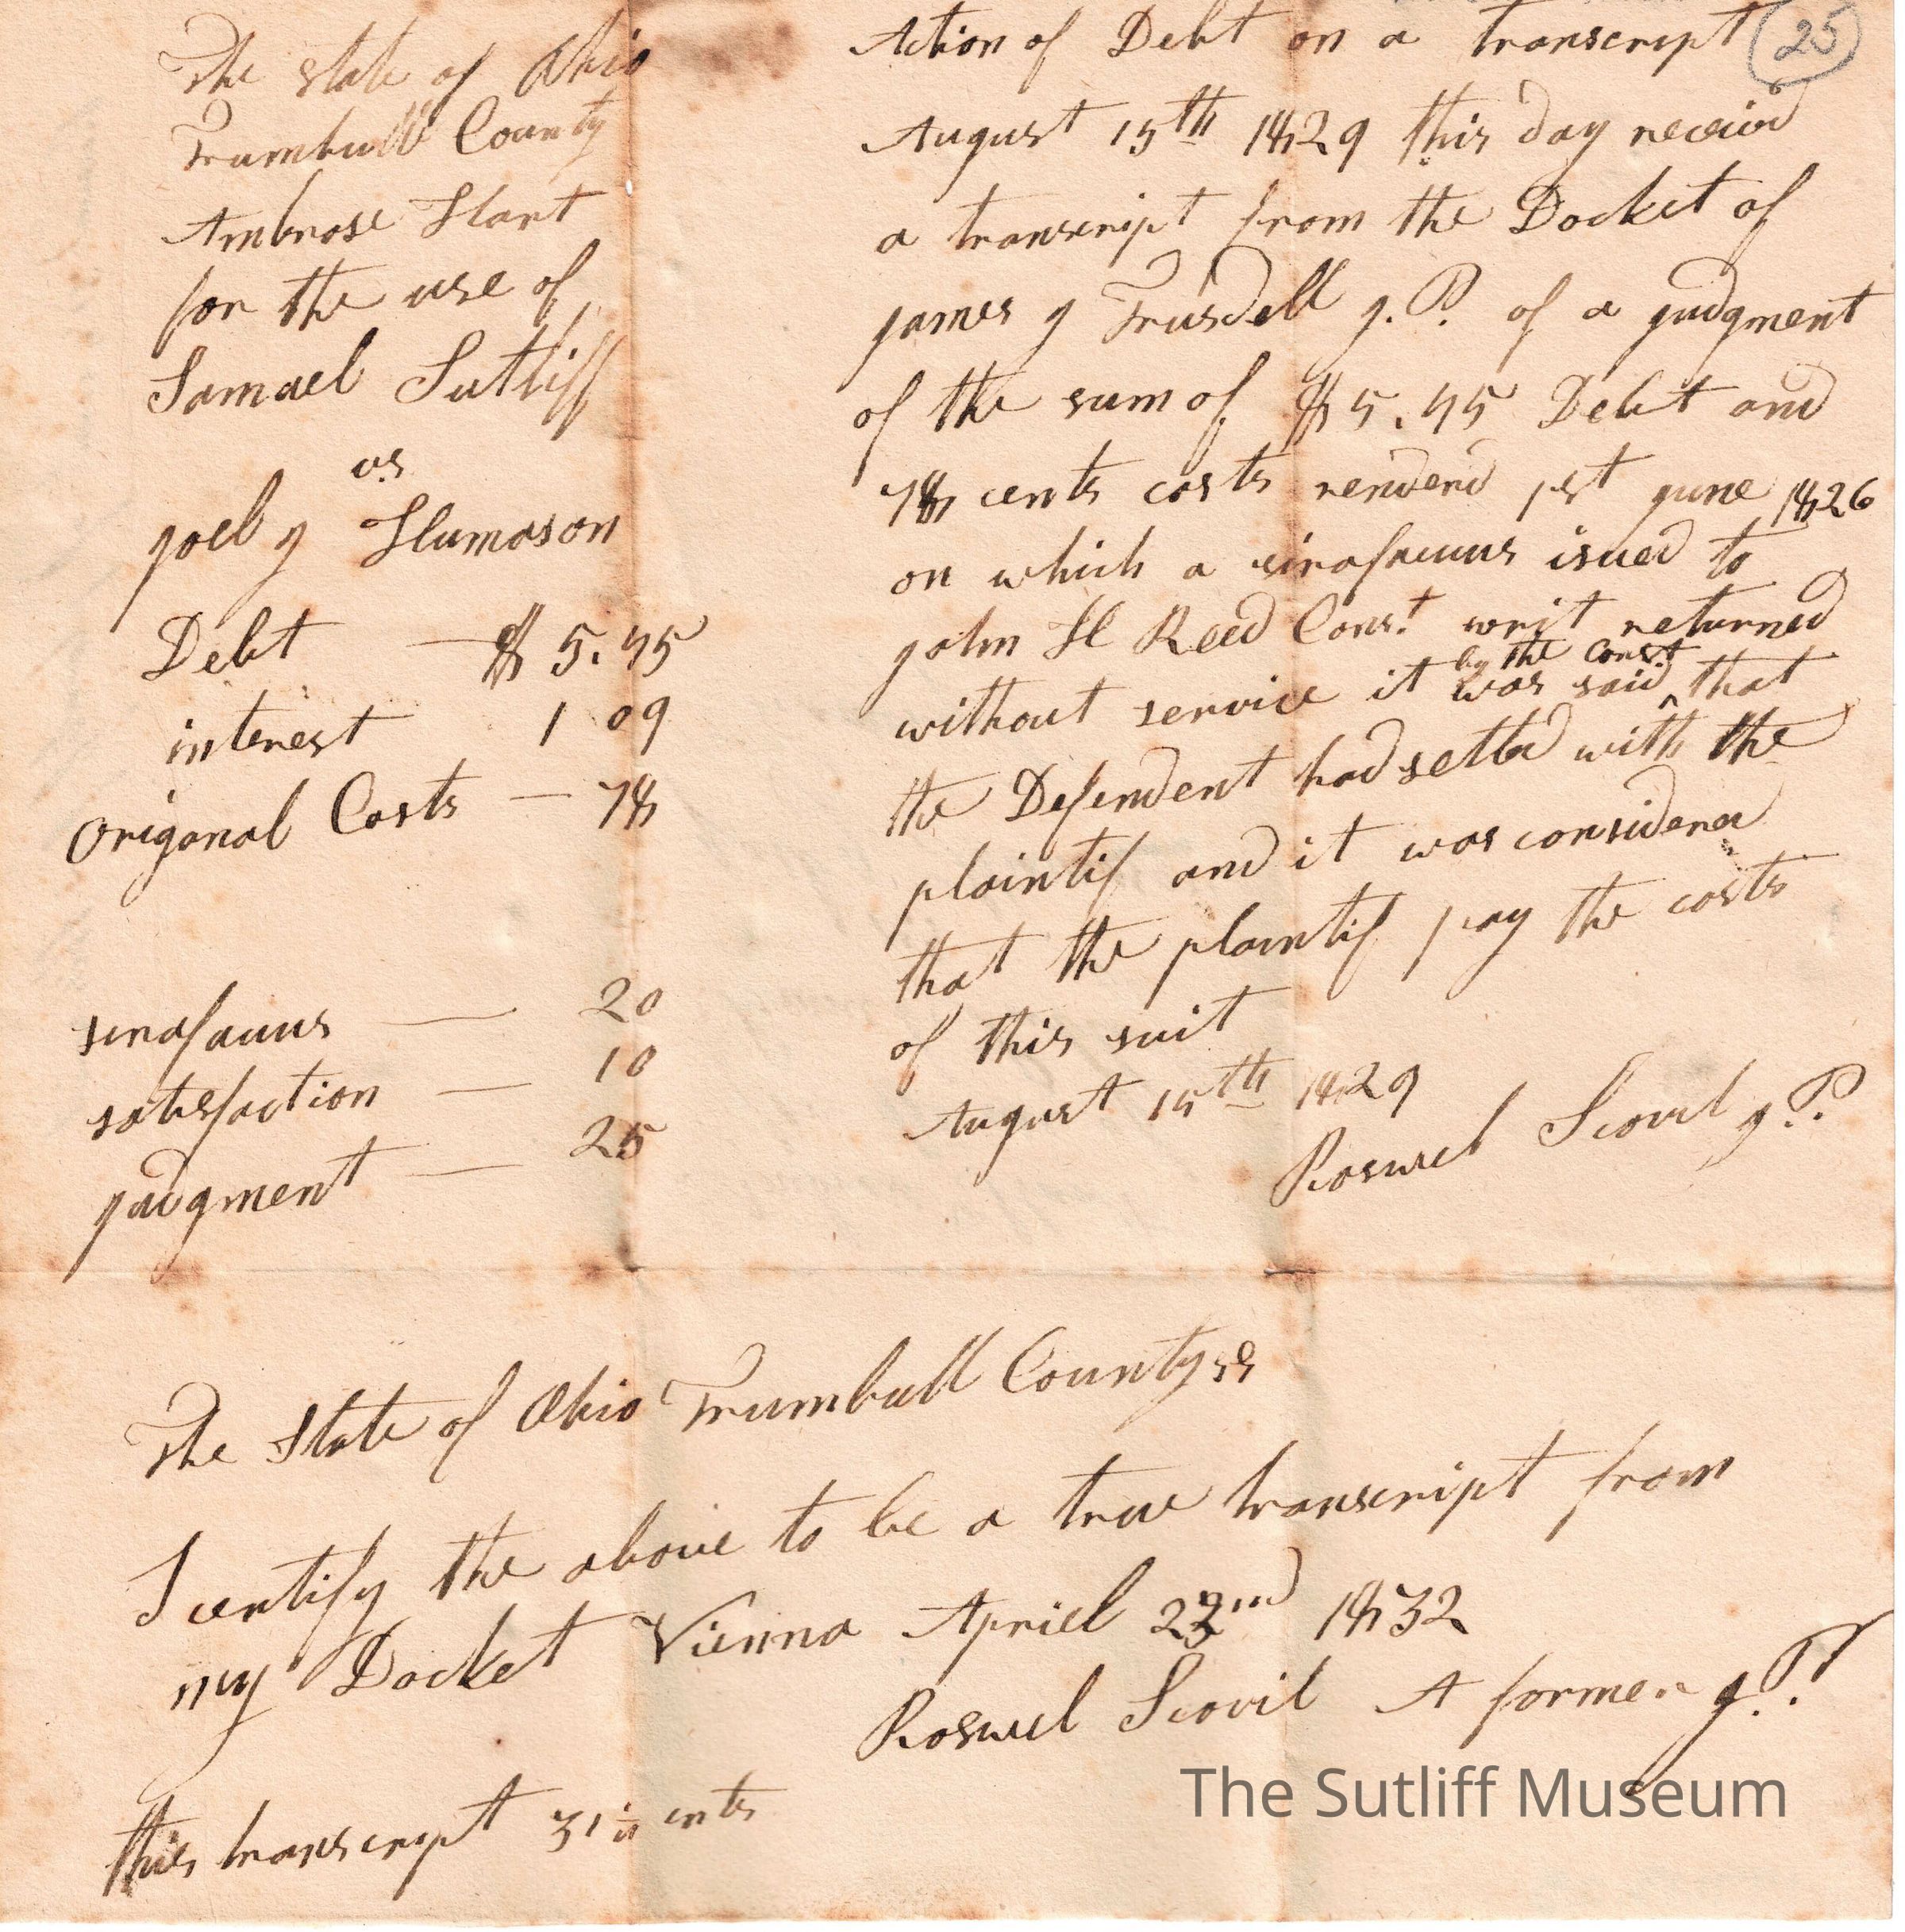 The state of Ohio
Trumbull County
Ambrose Hart
for the use of
Samuel Sutliff
vs
joel j Humason
Debt — $ 5.45
interest 1 09
Origanal Costs — 78
sirafacuus — 20
satisfaction — 10
judgment — 25
Action of Debt on a transcript
25
August 15th 1829 this day receivd
a transcript from the Docket of
james j Trusdell j.P. of a judgment
of the sum of $5.45 Debt and
78 cents costs renderd 1st june 1826
on which a sirafacuus isued to
john H Reed Const writ returned
by the Const
without service it was said ^ that
the Defendent had settld with the
plaintif and it was considered
that the plaintif pay the costs
of this suit
August 15th 1829
Roswel Scovil j.P.
The State of Ohio Trumbull County ss
I certify the above to be a true transcript from
my Docket Vienna Apriel 23nd 1832
Roswel Scovil A former j.P.
this transcript 31 1/4 cents
The Sutliff Museum